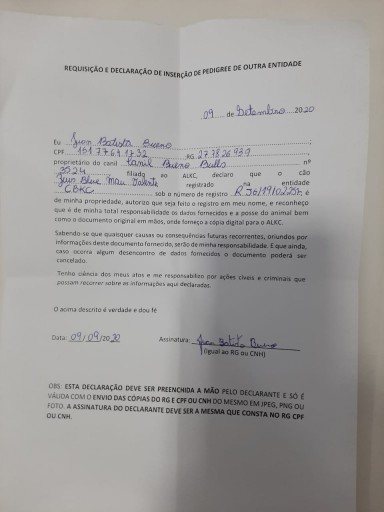 REQUISIÇÃO E DECLARAÇÃO DE INSERÇÃO DE PEDIGREE DE OUTRA ENTIDADE
09 de Setembro 2020
Eu Batista Bueno
CPF RG
proprietário do canil Canil Bueno Bulls nº
3524 filiado ao ALKC, declaro que o cão
Blue registrado na entidade
CBKC sob o número de registro é
de minha propriedade, autorizo que seja feito o registro em meu nome, e reconheço
que é de minha total responsabilidade os dados fornecidos e a posse do animal bem
como o documento original em mãos, onde forneço a cópia digital para o ALKC.
Sabendo-se que quaisquer causas ou consequências futuras recorrentes, oriundos por
informações deste documento fornecido, serão de minha responsabilidade. E que ainda,
caso ocorra algum desencontro de dados fornecidos o documento poderá ser
cancelado.
Tenho ciência dos meus atos e me responsabilizo por ações cíveis e criminais que
possam recorrer sobre as informações aqui declaradas.
O acima descrito é verdade e dou fé
Data: 09/09/2020 Assinatura: Batista Bueno
(Igual ao RG ou CNH)
OBS: ESTA DECLARAÇÃO DEVE SER PREENCHIDA A MÃO PELO DECLARANTE E SÓ É
VÁLIDA COM O ENVIO DAS CÓPIAS DO RG E CPF OU CNH DO MESMO EM JPEG, PNG OU
FOTO. A ASSINATURA DO DECLARANTE DEVE SER A MESMA QUE CONSTA NO RG CPF
OU CNH.